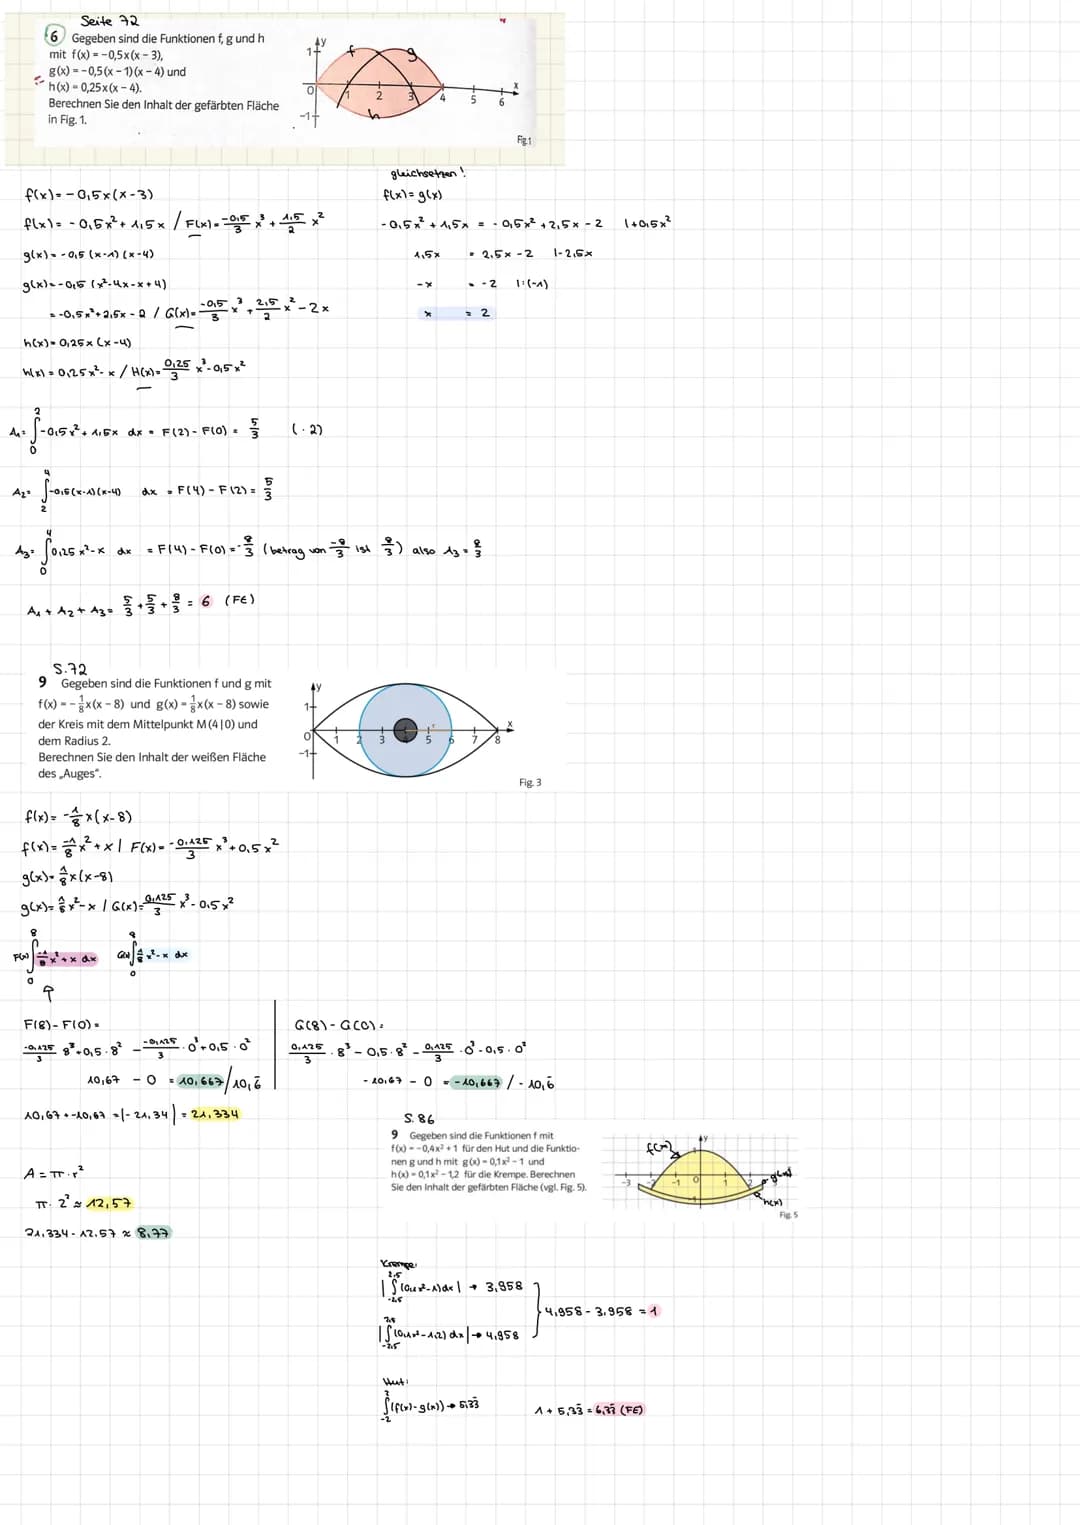 Seite 72
6 Gegeben sind die Funktionen f, g und h
mit f(x) = −0,5x(x − 3),
g(x) = −0,5(x − 1)(x − 4) und
h(x) = 0,25x(x − 4).
Berechnen Sie den Inhalt der gefärbten Fläche
in Fig. 1.
y
1
f
g
x
0
1 2 3 4 5 6
h
-1
Fig. 1
gleichsetzen!
f(x) = -0,5x(x-3)
f(x) = g(x)
f(x) = -0,5x² + 1,5x / F(x) = -0,5/3 x³ + 1,5/2 x²
-0,5x² + 1,5x = -0,5x² + 2,5x - 2 | +0,5x²
g(x) = -0,5 (x-1)(x-4)
1,5x = 2,5x - 2 | -2,5x
g(x) = -0,5 (x²-4x-x+4)
-x = -2 | :(-1)
= -0,5x² + 2,5x - 2 / G(x) = -0,5/3 x³ + 2,5/2 x² - 2x
x = 2
h(x) = 0,25x (x-4)
h(x) = 0,25x² - x / H(x) = 0,25/3 x³ - 0,5x²
A₁ = ∫₀² -0,5x² + 1,5x dx = F(2) - F(0) = 5/3 (·2)
A₂ = ∫₂⁴ -0,5(x-1)(x-4) dx = F(4) - F(2) = 5/3
A₃ = ∫₀⁴ 0,25x² - x dx = F(4) - F(0) = -8/3 (betrag von -8/3 ist 8/3) also A₃ = 8/3
A₁ + A₂ + A₃ = 5/3 + 5/3 + 8/3 = 6 (FE)
S.72
9 Gegeben sind die Funktionen f und g mit
f(x) = −1/8 x(x − 8) und g(x) = 1/8 x(x − 8) sowie
der Kreis mit dem Mittelpunkt M(4|0) und
dem Radius 2.
Berechnen Sie den Inhalt der weißen Fläche
des „Auges“.
y
1
x
0
1 2 3 5 6 7 8
-1
Fig. 3
f(x) = -1/8 x(x-8)
f(x) = -1/8 x² + x | F(x) = -0,125/3 x³ + 0,5x²
g(x) = 1/8 x(x-8)
g(x) = 1/8 x² - x / G(x) = 0,125/3 x³ - 0,5x²
F(x) ∫₀⁸ -1/8 x² + x dx G(x) ∫₀⁸ 1/8 x² - x dx
F(8) - F(0) =
-0,125/3 8³ + 0,5 · 8² - -0,125/3 · 0³ + 0,5 · 0²
10,67 - 0 = 10,667 / 10,6̄
G(8) - G(0) =
0,125/3 · 8³ - 0,5 · 8² - 0,125/3 · 0³ - 0,5 · 0²
-10,67 - 0 = -10,667 / -10,6̄
10,67 + -10,67 = |-21,34| = 21,334
A = π · r²
π · 2² ≈ 12,57
21,334 - 12,57 ≈ 8,77
S. 86
9 Gegeben sind die Funktionen f mit
f(x) = −0,4x² + 1 für den Hut und die Funktio-
nen g und h mit g(x) = 0,1x² − 1 und
h(x) = 0,1x² − 1,2 für die Krempe. Berechnen
Sie den Inhalt der gefärbten Fläche (vgl. Fig. 5).
f(x)
y
-3 -1 0 1 2
g(x)
h(x)
Fig. 5
Krempe:
|∫₋₂,₅^2,5 (0,1x²-1)dx| → 3,958
4,958 - 3,958 = 1
|∫₋₂,₅^2,5 (0,1x²-1,2)dx| → 4,958
Hut:
∫₋₂² (f(x)-g(x)) → 5,33̄
1 + 5,33̄ = 6,33̄ (FE)